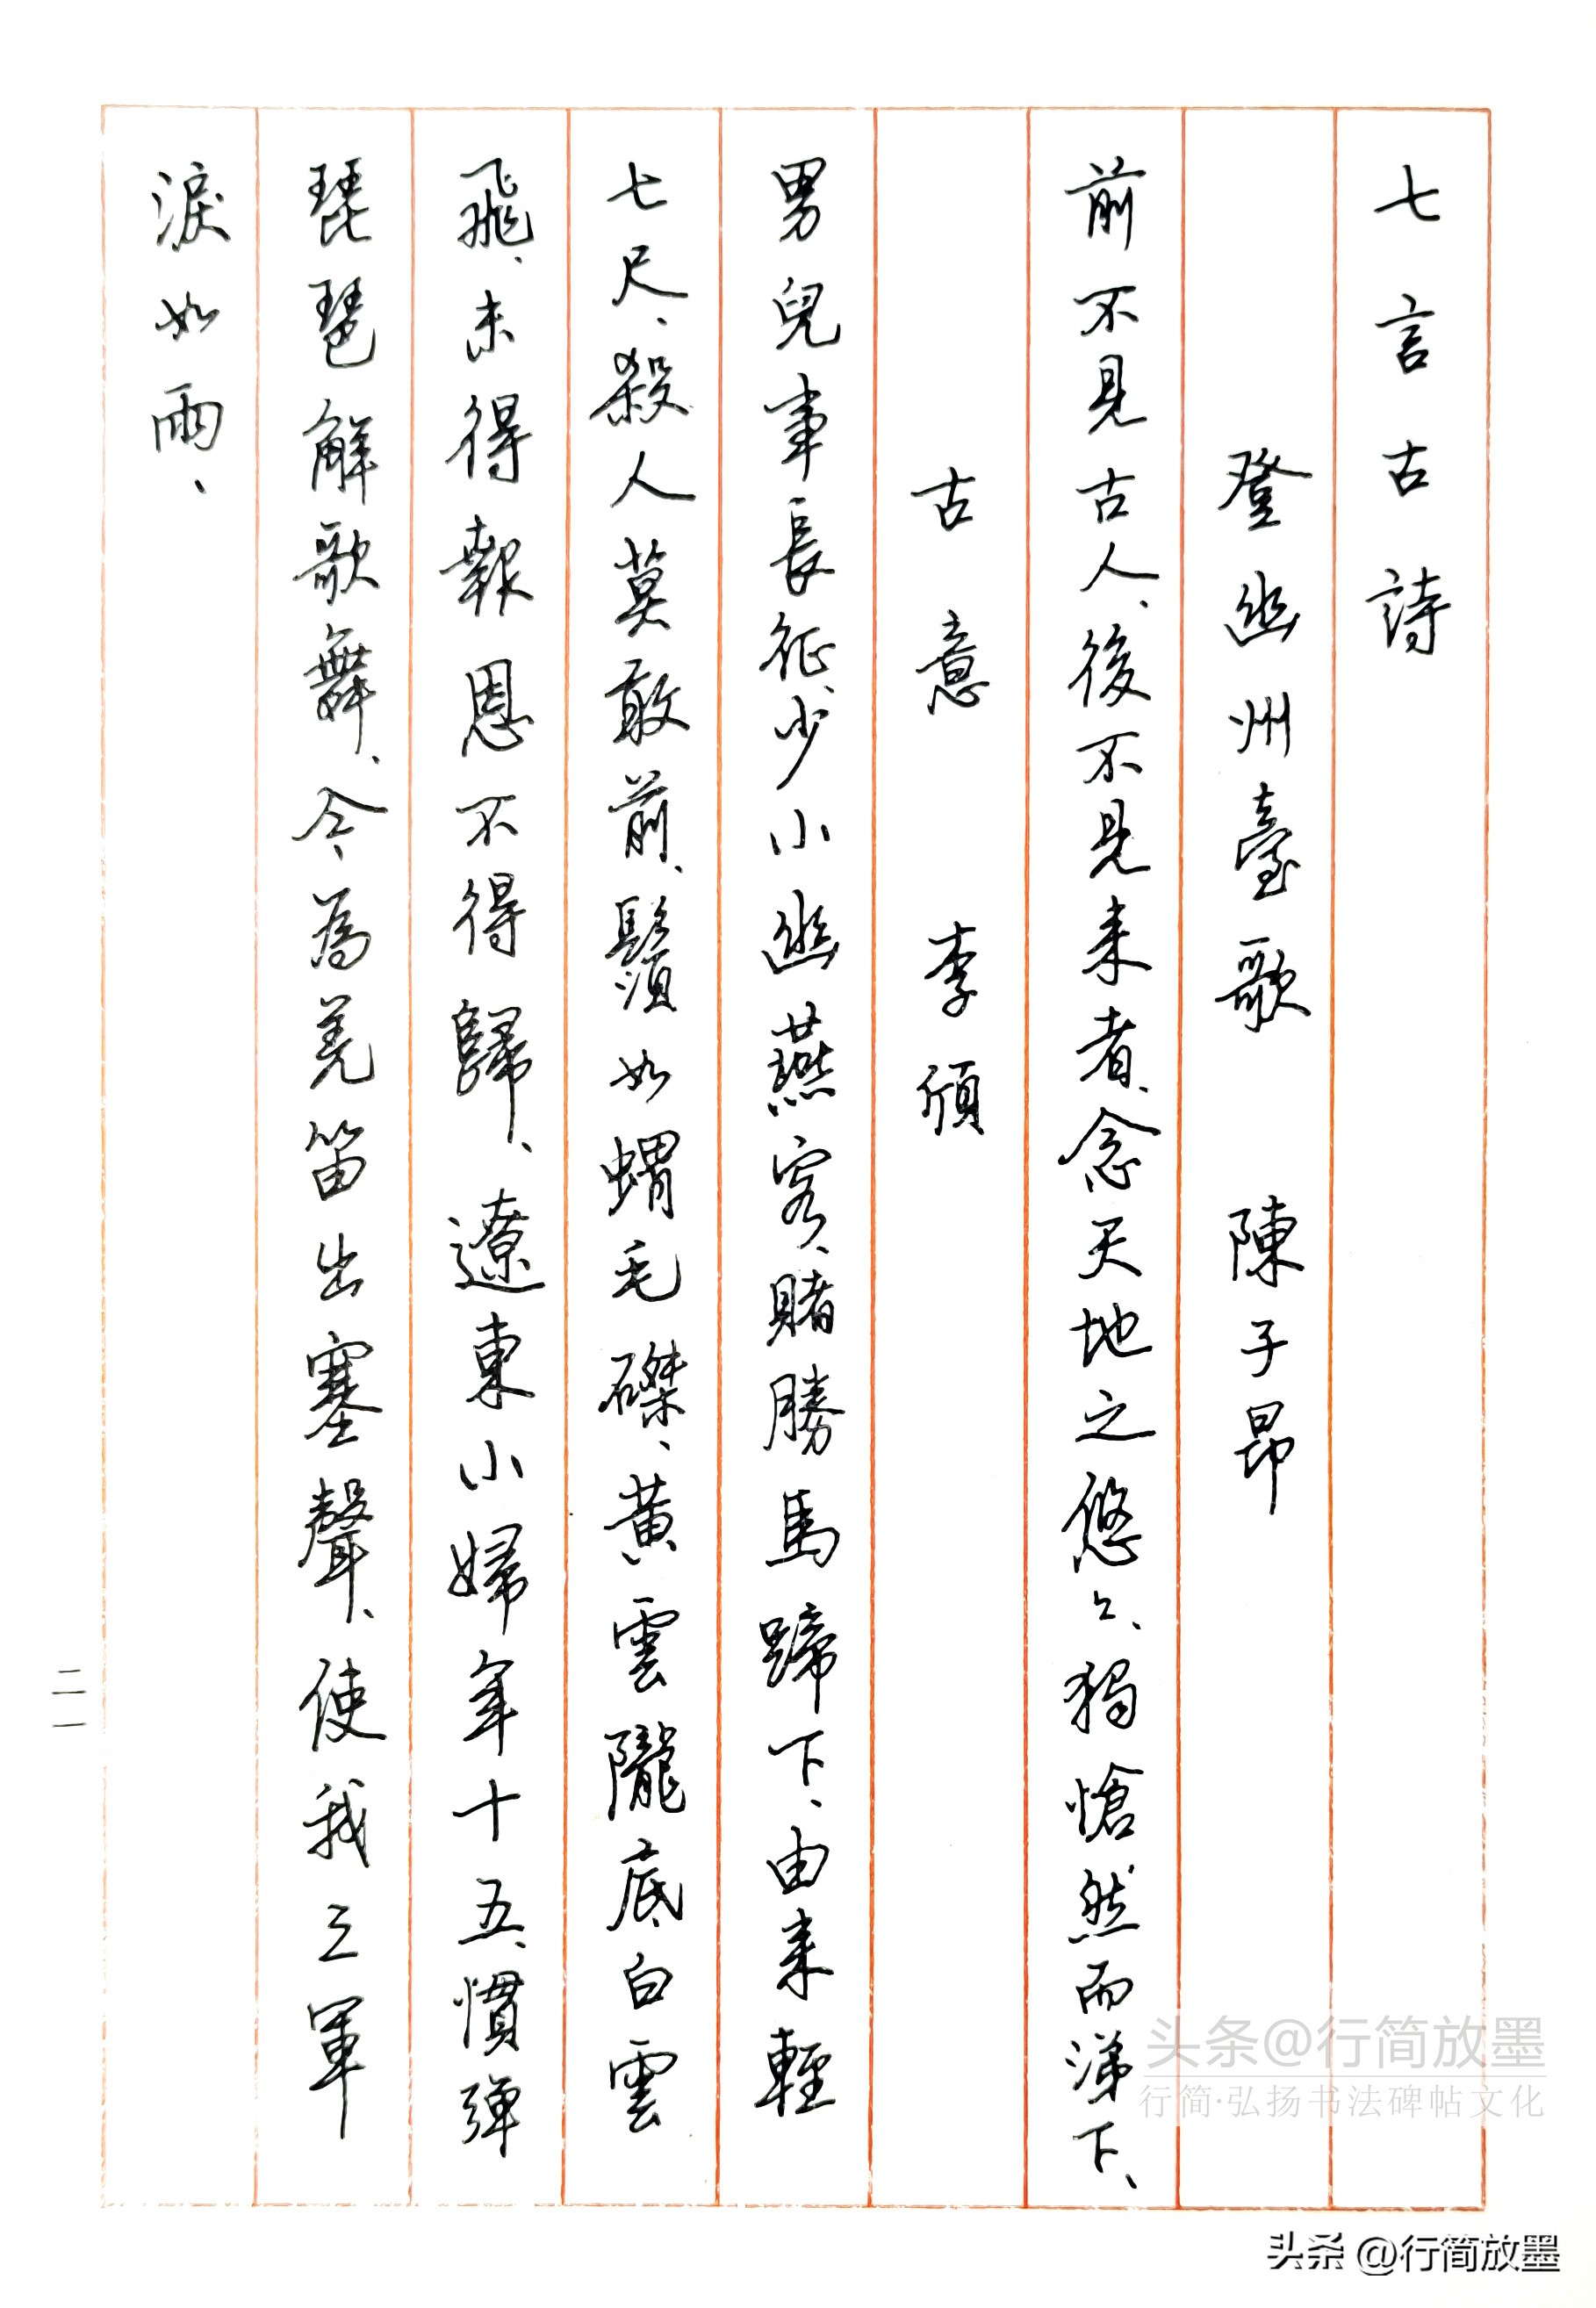 七言古詩
登幽州臺歌 陳子昂
前不見古人、後不見来者、念天地之悠々、獨愴然而涕下、
古意 李頎
男兒事長征、少小幽燕客、賭勝馬蹄下、由来輕
七尺、殺人莫敢前、鬚如蝟毛磔、黃雲隴底白雲
飛、未得報恩不得歸、遼東小婦年十五、慣弹
琵琶解歌舞、今為羌笛出塞聲、使我三軍
淚如雨、
二一
头条@行简放墨
行简·弘扬书法碑帖文化
头条 @行简放墨